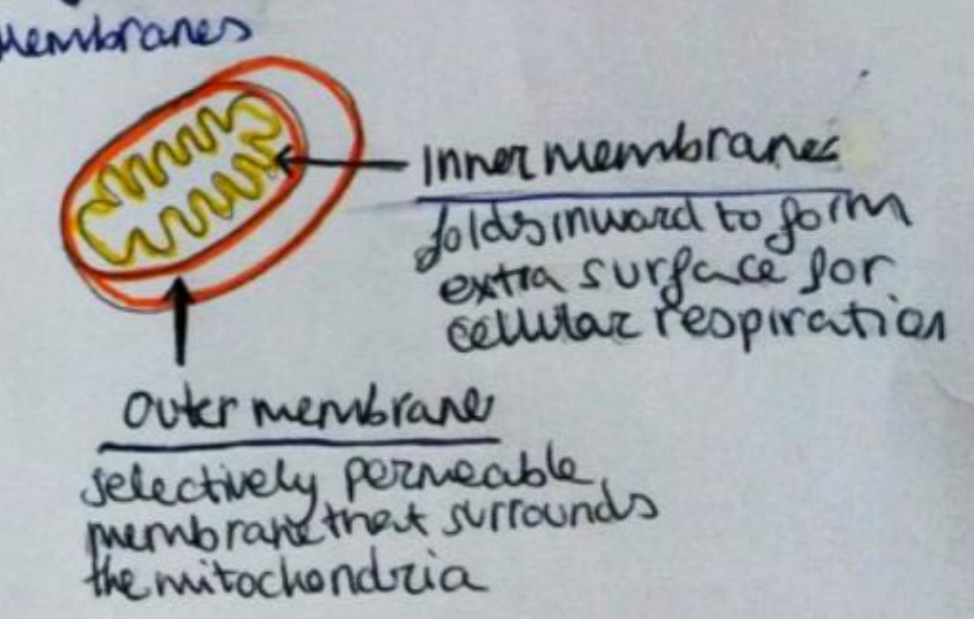 Membranes
Inner membranes
folds inward to form
extra surface for
cellular respiration
outer membrane
selectively permeable
membrane that surrounds
the mitochondria